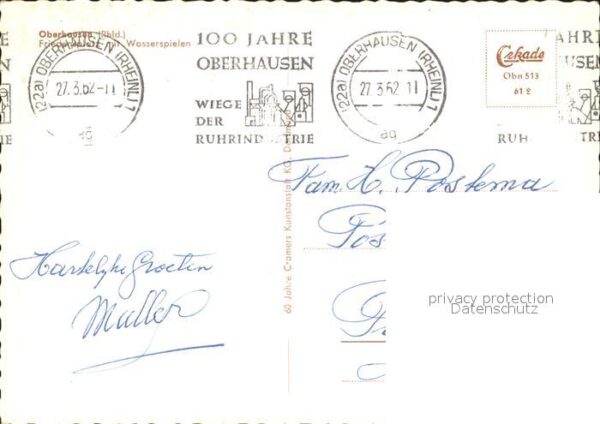 Oberhausen (Rhld.)
Wasserspielen
(22a) OBERHAUSEN (RHEINL) 1
27.3.62-11
ag
100 JAHRE
OBERHAUSEN
WIEGE
DER
RUHRINDUSTRIE
(22a) OBERHAUSEN (RHEINL) 1
27.3.62-11
ag
Cekade
Obn 513
61 2
AHRE
USEN
RUH TRIE
60 Jahre Cramers Kunstanstalt KG, Dortmund
Fam. H. Postema
Pos
Hartelijke Groeten
Muller
privacy protection
Datenschutz